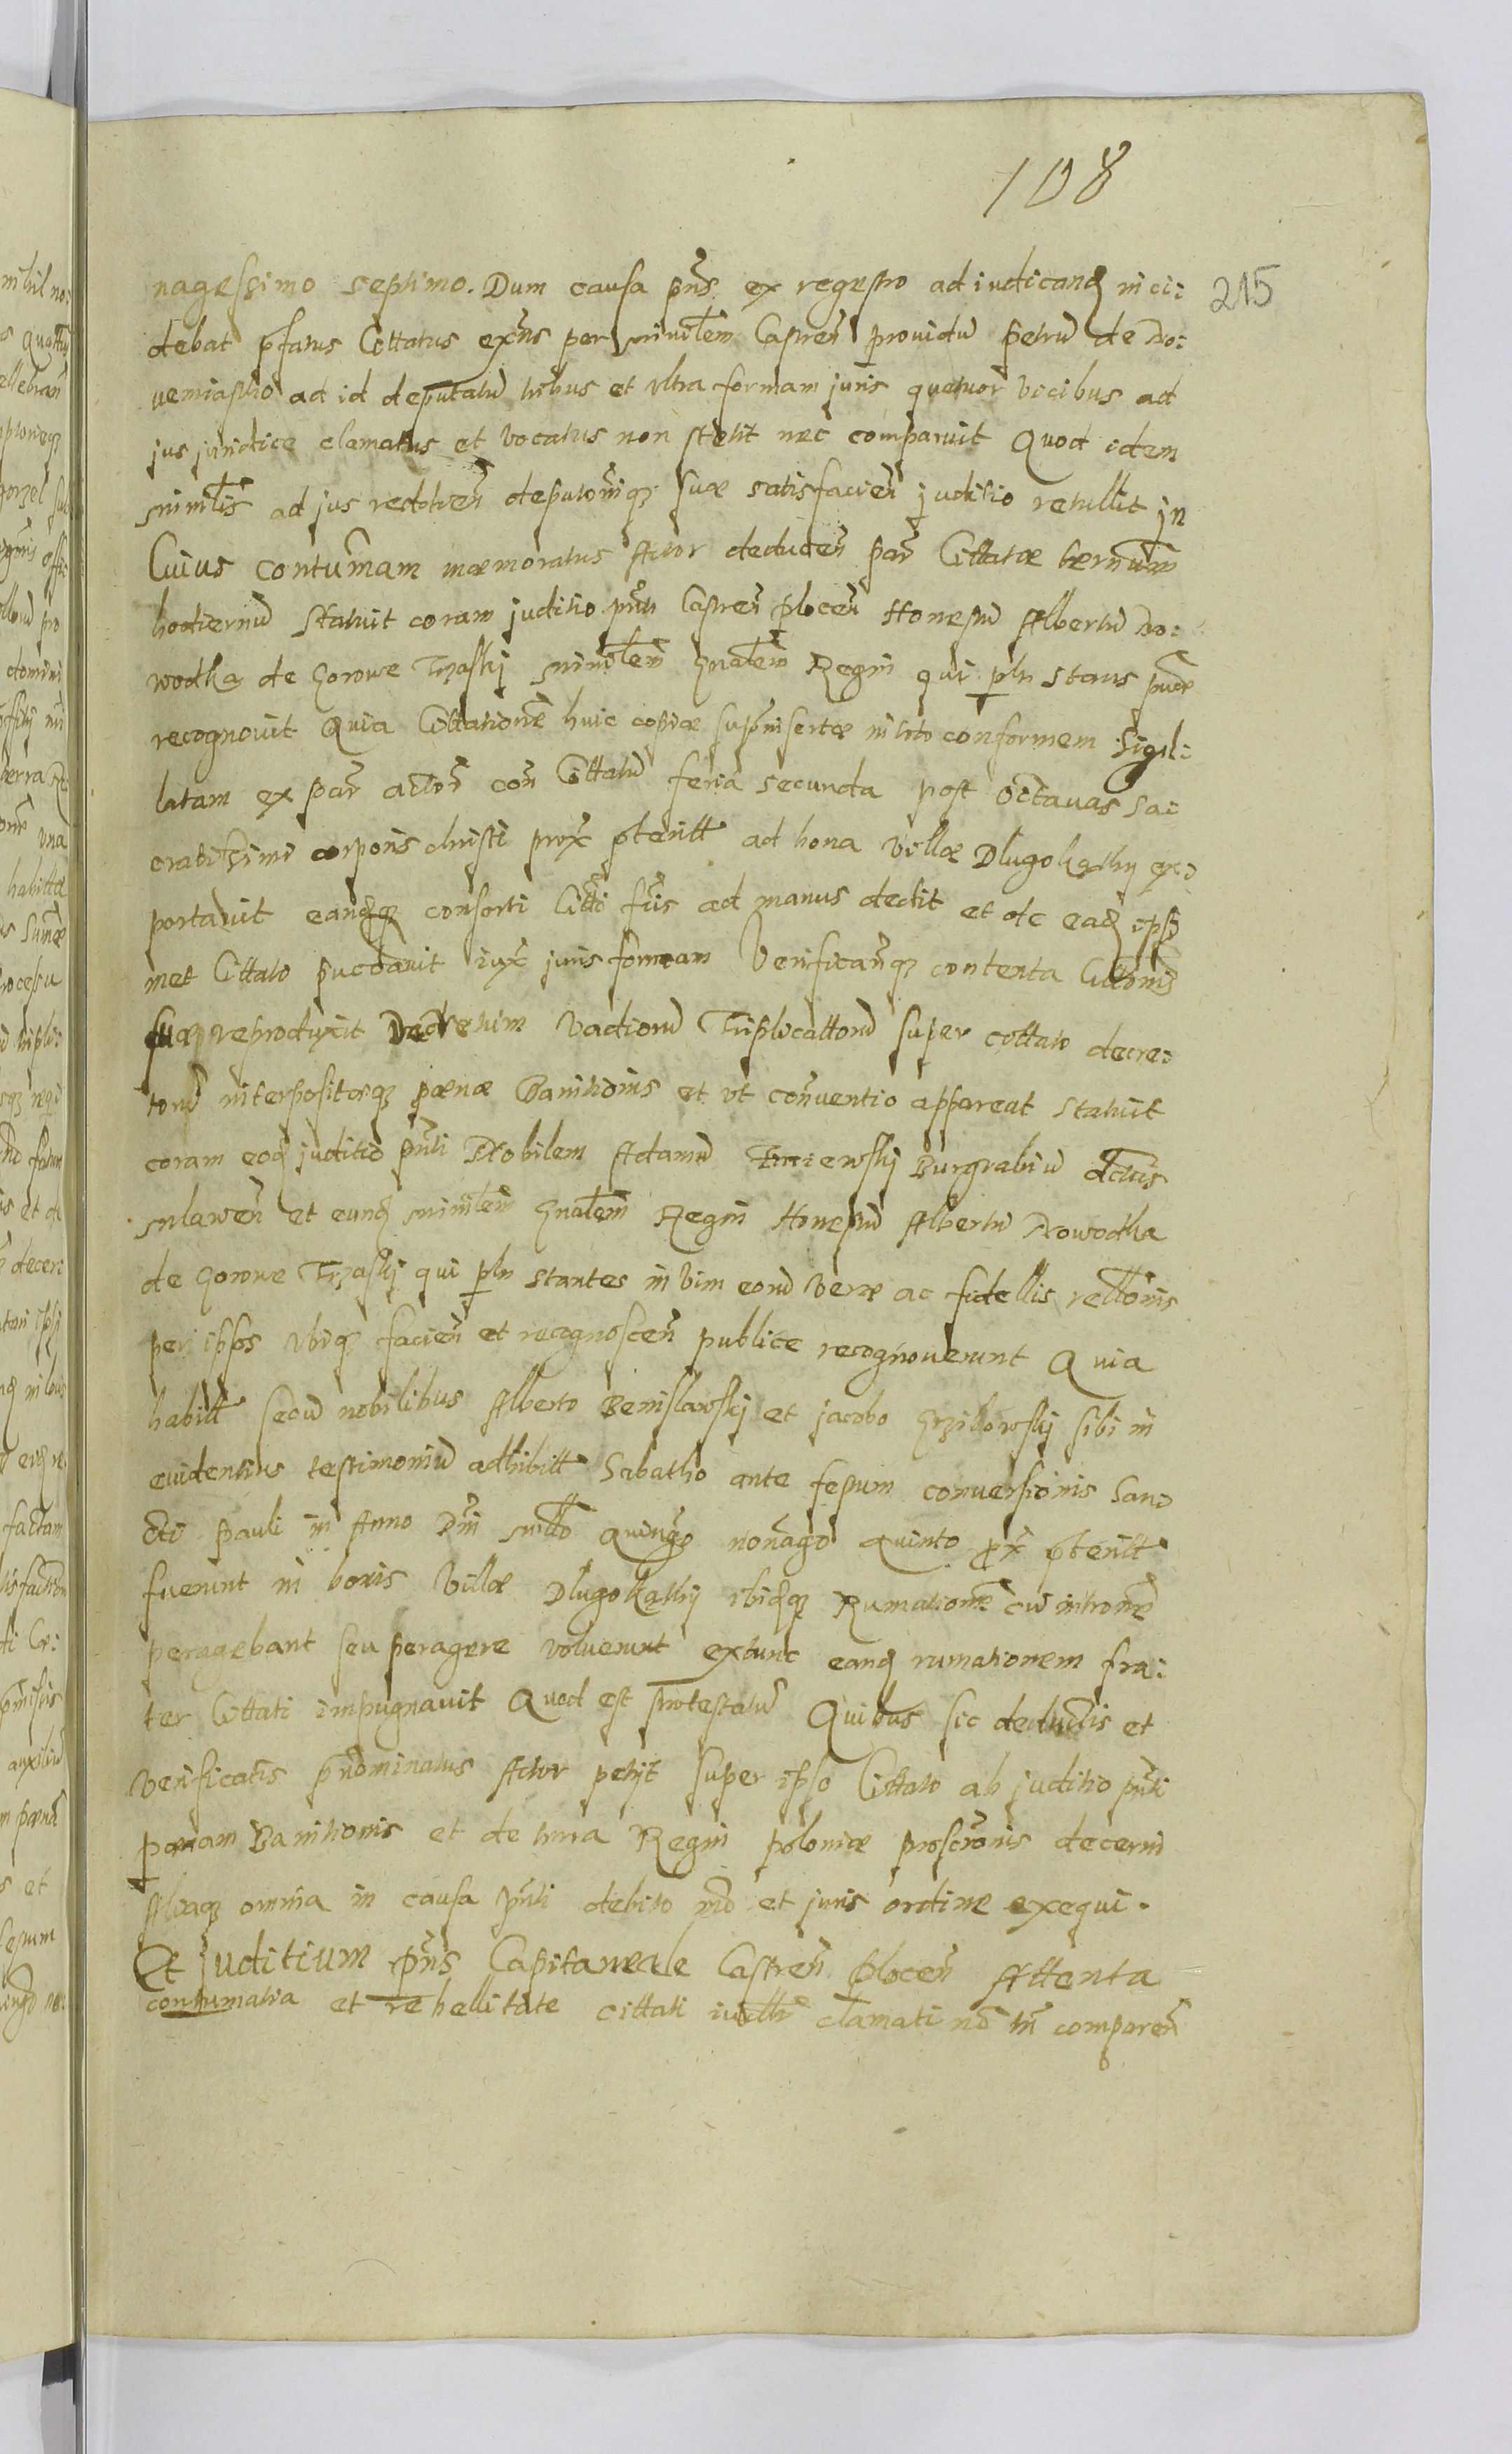 108
215
nagessimo septimo. Dum causa pñs ex regestro ad iudicand inci:
debat pfatus Cittatus exñs per minrlem Castreñ providu Petru de No:
vemiasto ad id deputatu tribus et ultra formam juris quatuor vicibus ad
jus juridice clamatus et vocatus non stetit nec comparuit Quod idem
minrlis ad jus reddicen deputoniqz suae satisfacien juditio retullit jn
Cuius contumam maemoratus Actor deducen par Cittatae termum
hodiernu Statuit coram juditio pnti Castreñ Ploceñ Honestu Albertu No:
wodka de Gorowe Trzaski minrlem Gnalem Regni qui pln stans puce
recognovit Quia Cittatione huic copiae suprinsertae in toto conformem Sigil:
latam ex par actor con Cittatu feria secunda post octavas Sa:
cratissimi corporis christi prox pteritt ad bona villae Dlugokąthy ex:
portavit eandqz consorti Citti suis ad manus dedit et de ead ipsi
met Cittato pucavit iux juris formam Verificanqz contenta Cittonis
suae reproduxit Decretum vadioru Triplicattoru super cittato decre:
toru interpositorqz paenae Banitionis et ut conventio appareat Statuit
coram eod juditio pnti Nobilem Adamu ewskj Burgrabiu
mlaweñ et eund minrlem Gnalem Regni Honestu Albertu Nowodka
de Gorowe Trzaski qui pln stantes in vim eoru verae ac fidellis rellonis
per ipsos ubiqz facien et recognoscen publice recognoverunt Quia
habitt secu nobilibus Alberto Benislawskj et jacobo Grzibowskj sibi in
evidentius testimoniu adhibitt Sabatho ante festum conversionis San:
cti Pauli in Anno Dni millo quingo nonago quinto prox pteritt
fuerunt in bonis villae Dlugokąthy ibidqz Rumatione cu introne
peragebant seu peragere voluerunt extunc eand rumationem fra:
ter Cittati impugnavit Quod est protestatu Quibus sic deductis et
verificatis pnominatus Actor petijt super ipso Cittato ab juditio pnti
paenam Banitionis et de terra Regni Poloniae proscronis decerni
Aliaqz omnia in causa pnti debito mo et juris ordine exequi.
Et juditium pñs Capitaneale Castreñ Ploceñ Attenta
contumatia et rebellitate cittati iudlr clamati no tñ compareñ